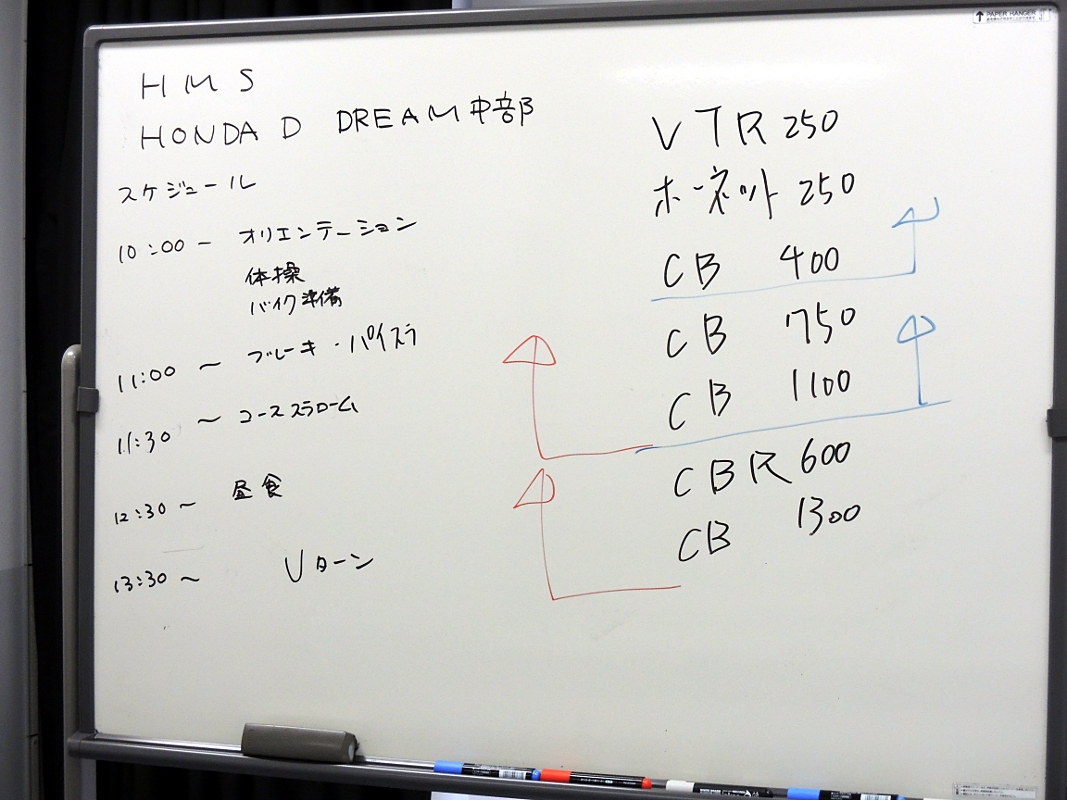 HMS
HONDA D DREAM中部
スケジュール
10:00 〜 オリエンテーション
体操
バイク準備
11:00 〜 ブレーキ・パイスラ
11:30 〜 コーススラローム
12:30 〜 昼食
13:30 〜 Uターン
VTR 250
ホーネット 250
CB 400
CB 750
CB 1100
CBR 600
CB 1300
PAPER HANGER